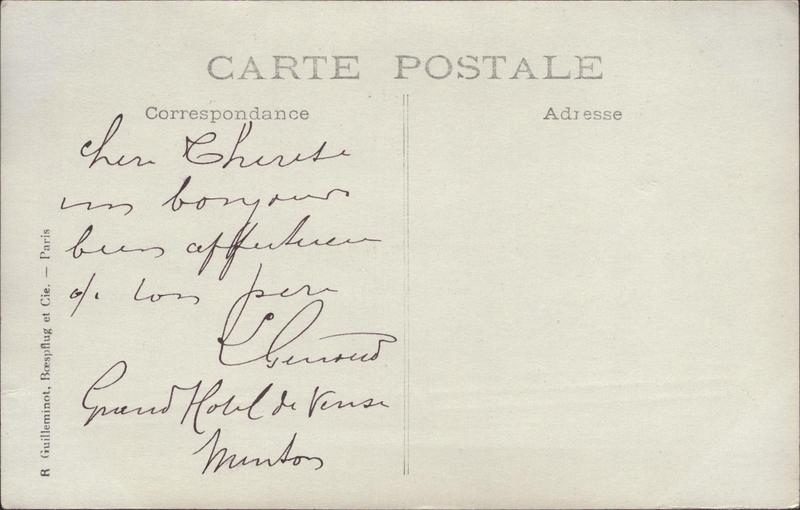 CARTE POSTALE
Correspondance
Adresse
Chere Therese
un bonjour
bien affectueux
de ton pere
Grand Hotel de Venise
Menton
R Guilleminot, Bœspflug et Cie. — Paris